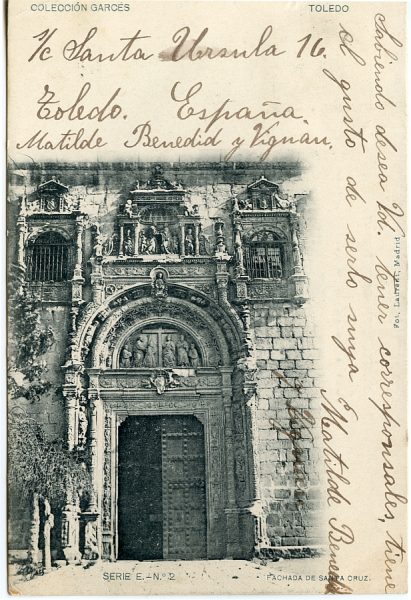 COLECCIÓN GARCÉS
TOLEDO
S/c Santa Ursula 16.
Toledo. España.
Matilde Benedid y Vignau.
Sabiendo desea Vd. tener corresponsales, tiene
el gusto de serlo suya Matilde Benedid
y Vignau
Fot. Laurent, Madrid
SERIE E.-N.º 2
FACHADA DE SANTA CRUZ.